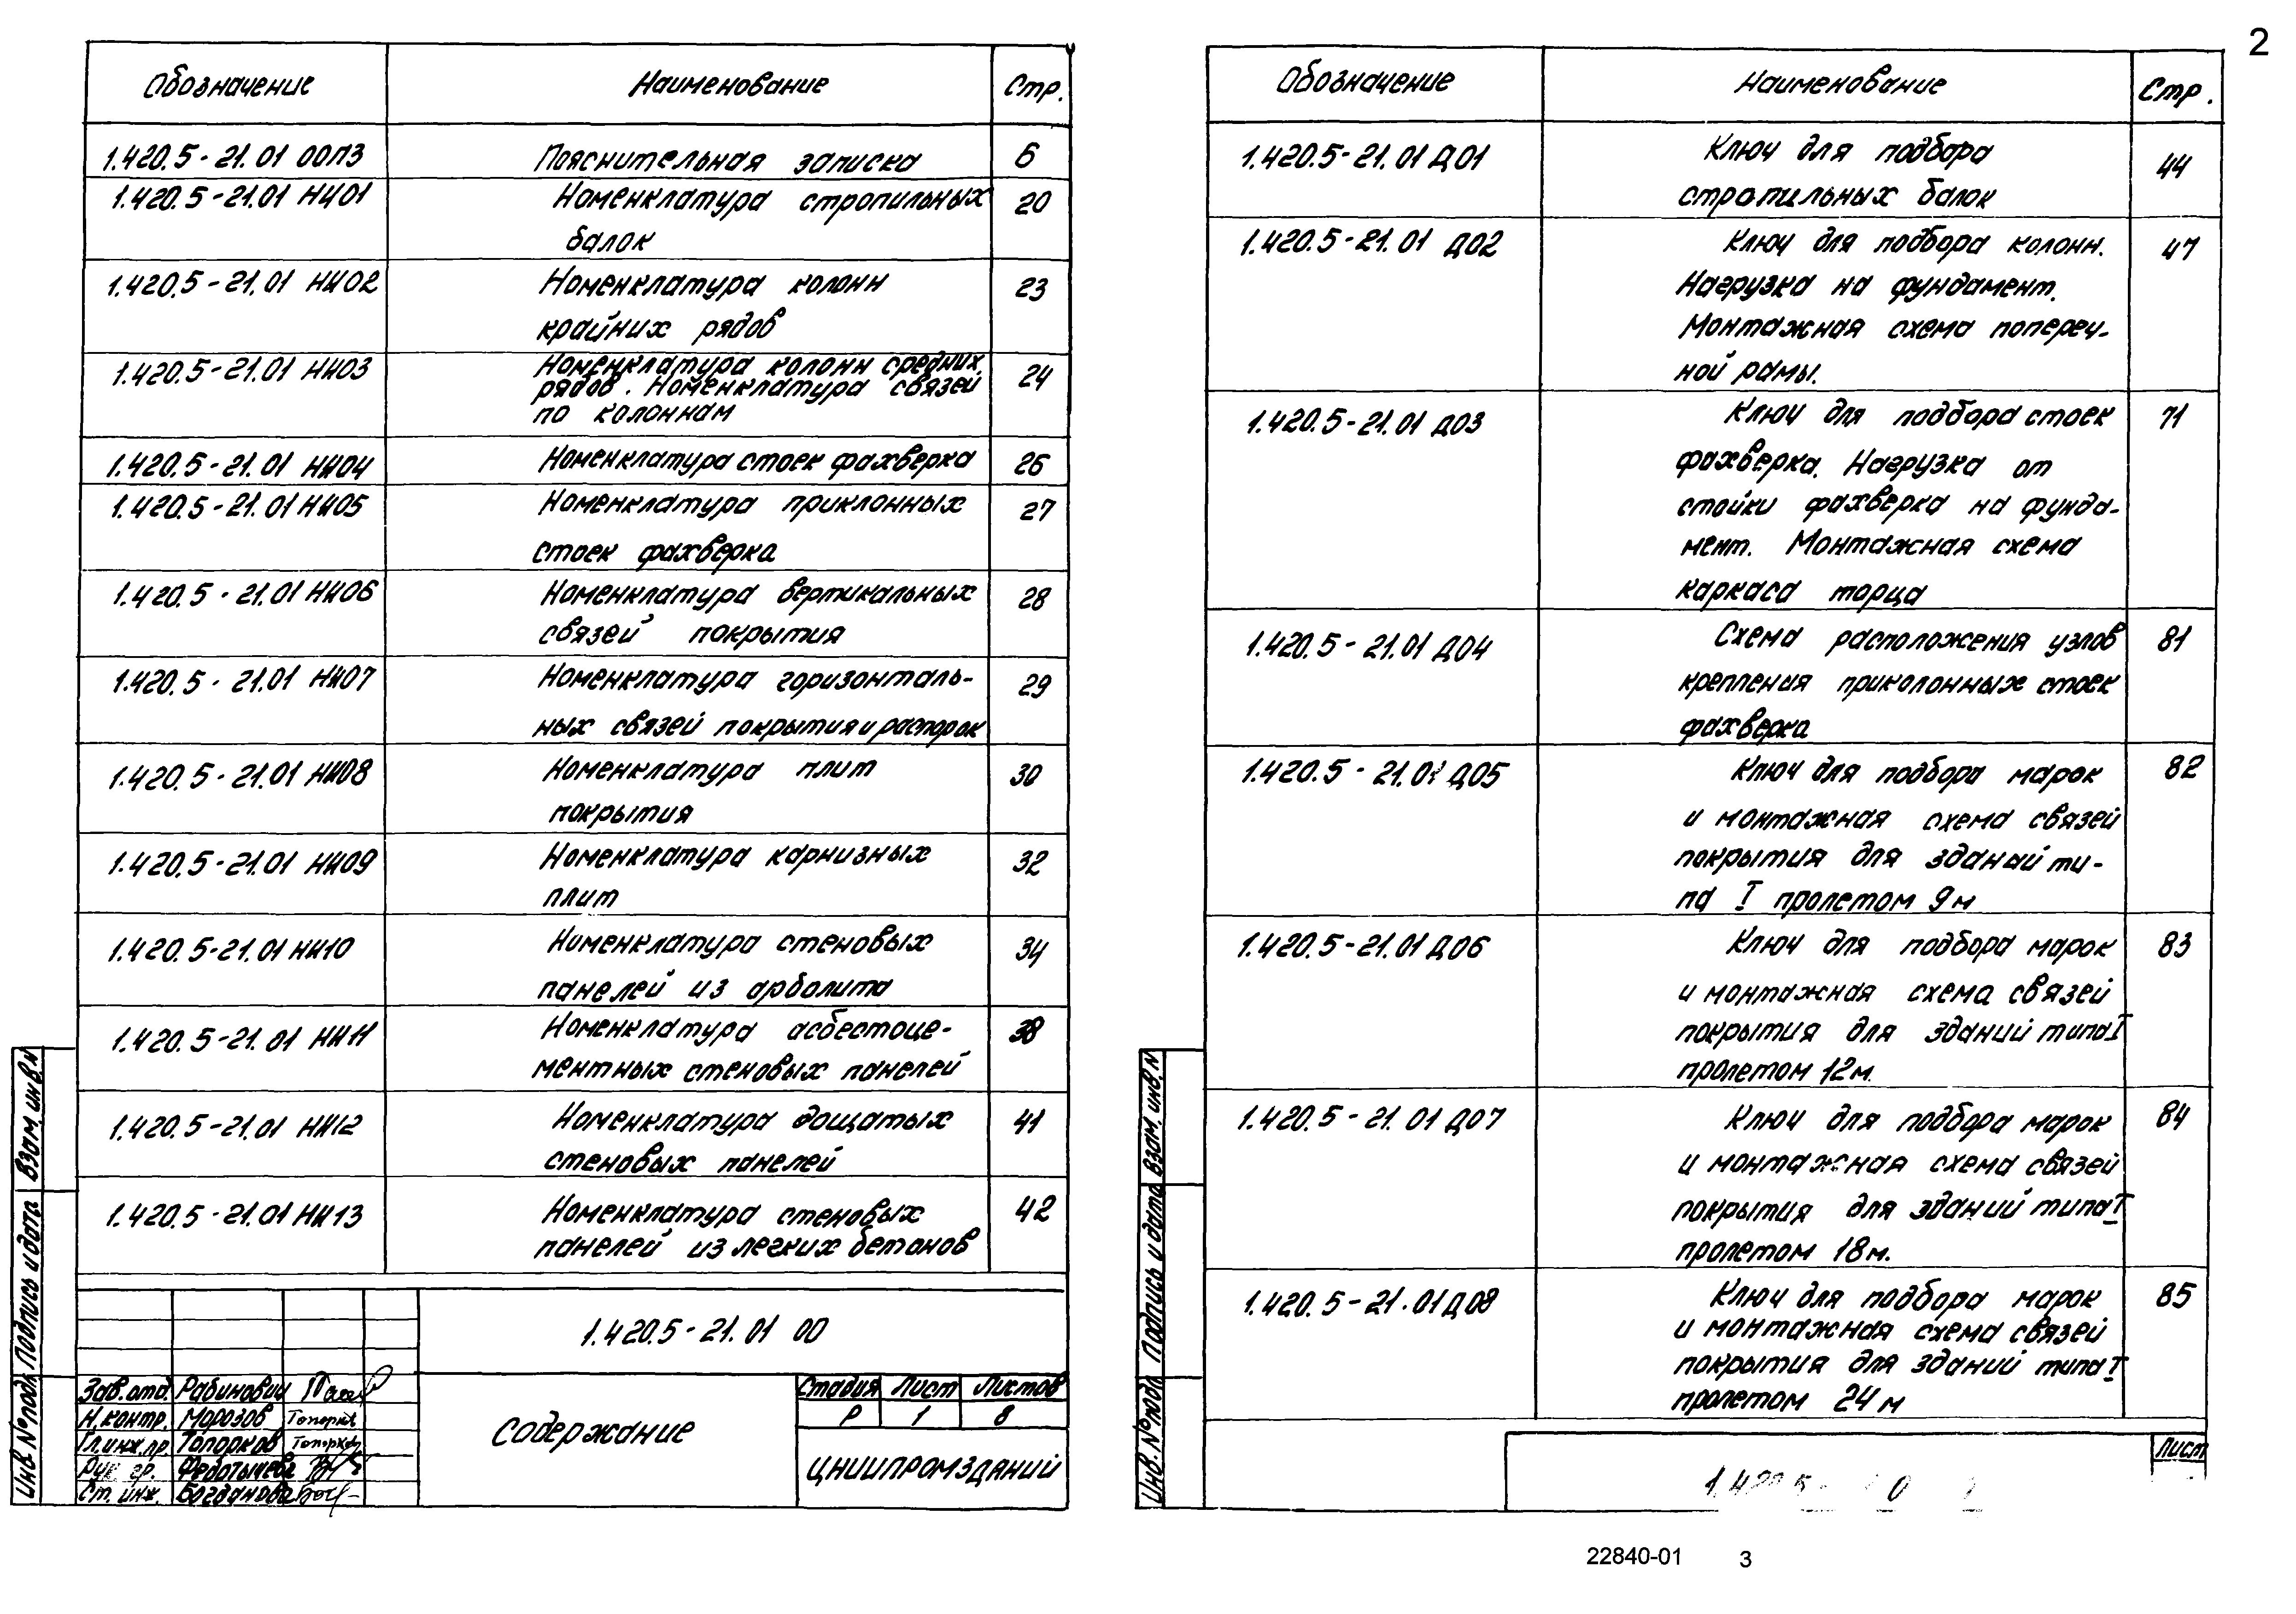 2
Обозначение Наименование Стр.
1.420.5-21.01 00ПЗ Пояснительная записка 6
1.420.5-21.01 НИ01 Номенклатура стропильных 20
балок
1.420.5-21.01 НИ02 Номенклатура колонн 23
крайних рядов
1.420.5-21.01 НИ03 Номенклатура колонн средних 24
рядов. Номенклатура связей
по колоннам
1.420.5-21.01 НИ04 Номенклатура стоек фахверка 26
1.420.5-21.01 НИ05 Номенклатура приклонных 27
стоек фахверка
1.420.5-21.01 НИ06 Номенклатура вертикальных 28
связей покрытия
1.420.5-21.01 НИ07 Номенклатура горизонталь- 29
ных связей покрытия и распорок
1.420.5-21.01 НИ08 Номенклатура плит 30
покрытия
1.420.5-21.01 НИ09 Номенклатура карнизных 32
плит
1.420.5-21.01 НИ10 Номенклатура стеновых 34
панелей из арболита
1.420.5-21.01 НИ11 Номенклатура асбестоце- 38
ментных стеновых панелей
1.420.5-21.01 НИ12 Номенклатура дощатых 41
стеновых панелей
1.420.5-21.01 НИ13 Номенклатура стеновых 42
панелей из легких бетонов
1.420.5-21.01 00
Зав.отд. Рабинович
Н.контр. Морозов Топорков
Гл.инж.пр. Топорков Топорков
Рук. гр. Федотычева
Ст. инж. Богданова
Содержание
Стадия Лист Листов
Р 1 8
ЦНИИПРОМЗДАНИЙ
Инв. № подл. Подпись и дата Взам. инв. №
Обозначение Наименование Стр.
1.420.5-21.01 Д01 Ключ для подбора 44
стропильных балок
1.420.5-21.01 Д02 Ключ для подбора колонн. 47
Нагрузка на фундамент.
Монтажная схема попереч-
ной рамы.
1.420.5-21.01 Д03 Ключ для подбора стоек 71
фахверка. Нагрузка от
стойки фахверка на фунда-
мент. Монтажная схема
каркаса торца
1.420.5-21.01 Д04 Схема расположения узлов 81
крепления приколонных стоек
фахверка
1.420.5-21.01 Д05 Ключ для подбора марок 82
и монтажная схема связей
покрытия для зданий ти-
па I пролетом 9м
1.420.5-21.01 Д06 Ключ для подбора марок 83
и монтажная схема связей
покрытия для зданий типа I
пролетом 12м.
1.420.5-21.01 Д07 Ключ для подбора марок 84
и монтажная схема связей
покрытия для зданий типа I
пролетом 18м.
1.420.5-21.01 Д08 Ключ для подбора марок 85
и монтажная схема связей
покрытия для зданий типа I
пролетом 24м
Лист
1.420.5-
Инв. № подл. Подпись и дата Взам. инв. №
22840-01 3